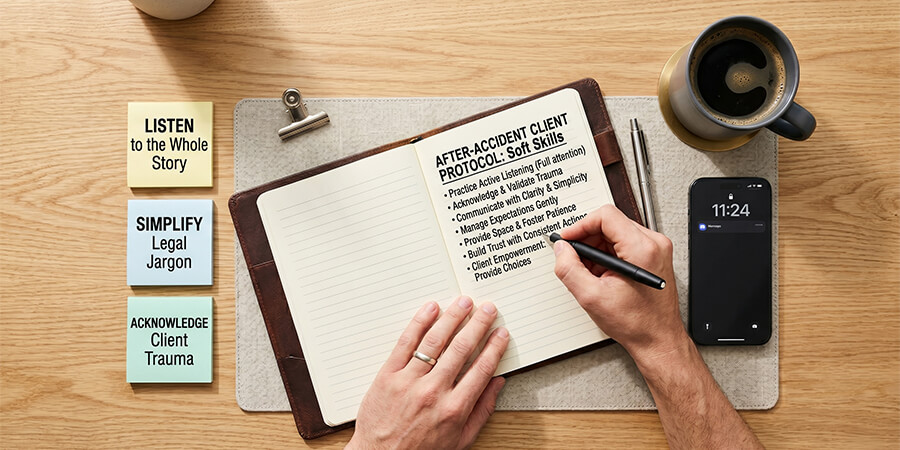 LISTEN
to the Whole
Story
SIMPLIFY
Legal
Jargon
ACKNOWLEDGE
Client
Trauma
AFTER-ACCIDENT CLIENT
PROTOCOL: Soft Skills
• Practice Active Listening (Full attention)
• Acknowledge & Validate Trauma
• Communicate with Clarity & Simplicity
• Manage Expectations Gently
• Provide Space & Foster Patience
• Build Trust with Consistent Actions
• Client Empowerment:
Provide Choices
11:24